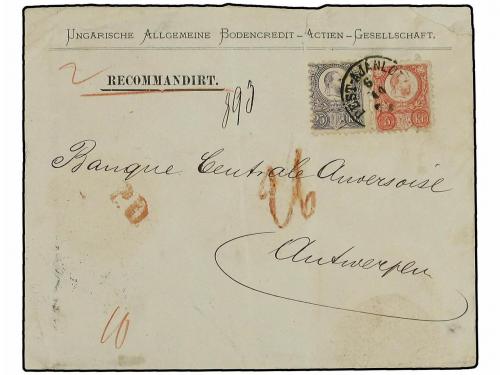 UNGARISCHE ALLGEMEINE BODENCREDIT-ACTIEN-GESELLSCHAFT.
RECOMMANDIRT.
Banque Centrale Anversoise
Antwerpen
26
10